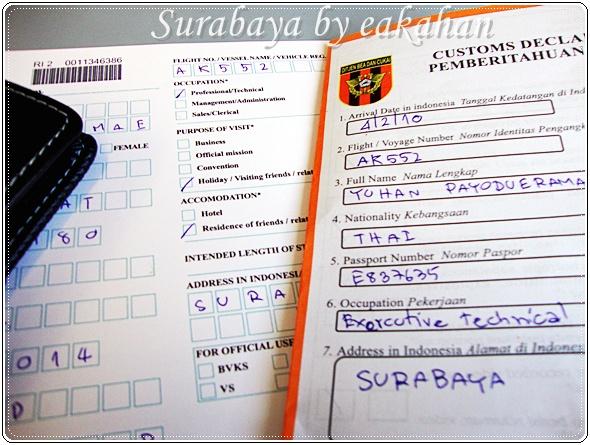 Surabaya by eakahan
RI 2 0011346386
M A E
FEMALE
A T
1 8 0
0 1 4
D
FLIGHT NO. / VESSEL NAME / VEHICLE REG.
A K 5 5 2
OCCUPATION*
Professional/Technical
Management/Administration
Sales/Clerical
PURPOSE OF VISIT*
Business
Official mission
Convention
Holiday / Visiting friends / rela
ACCOMODATION*
Hotel
Residence of friends / relat
INTENDED LENGTH OF ST
ADDRESS IN INDONESIA
S U R A
FOR OFFICIAL USE
BVKS
VS
DITJEN BEA DAN CUKAI
CUSTOMS DECLA
PEMBERITAHUAN
1. Arrival Date in indonesia Tanggal Kedatangan di Ind
4/2/10
2. Flight / Voyage Number Nomor Identitas Pengangk
AK552
3. Full Name Nama Lengkap
YUHAN PAYODUERAMA
4. Nationality Kebangsaan
THAI
5. Passport Number Nomor Paspor
E837635
6. Occupation Pekerjaan
Exorcutive technical
7. Address in Indonesia Alamat di Indones
SURABAYA